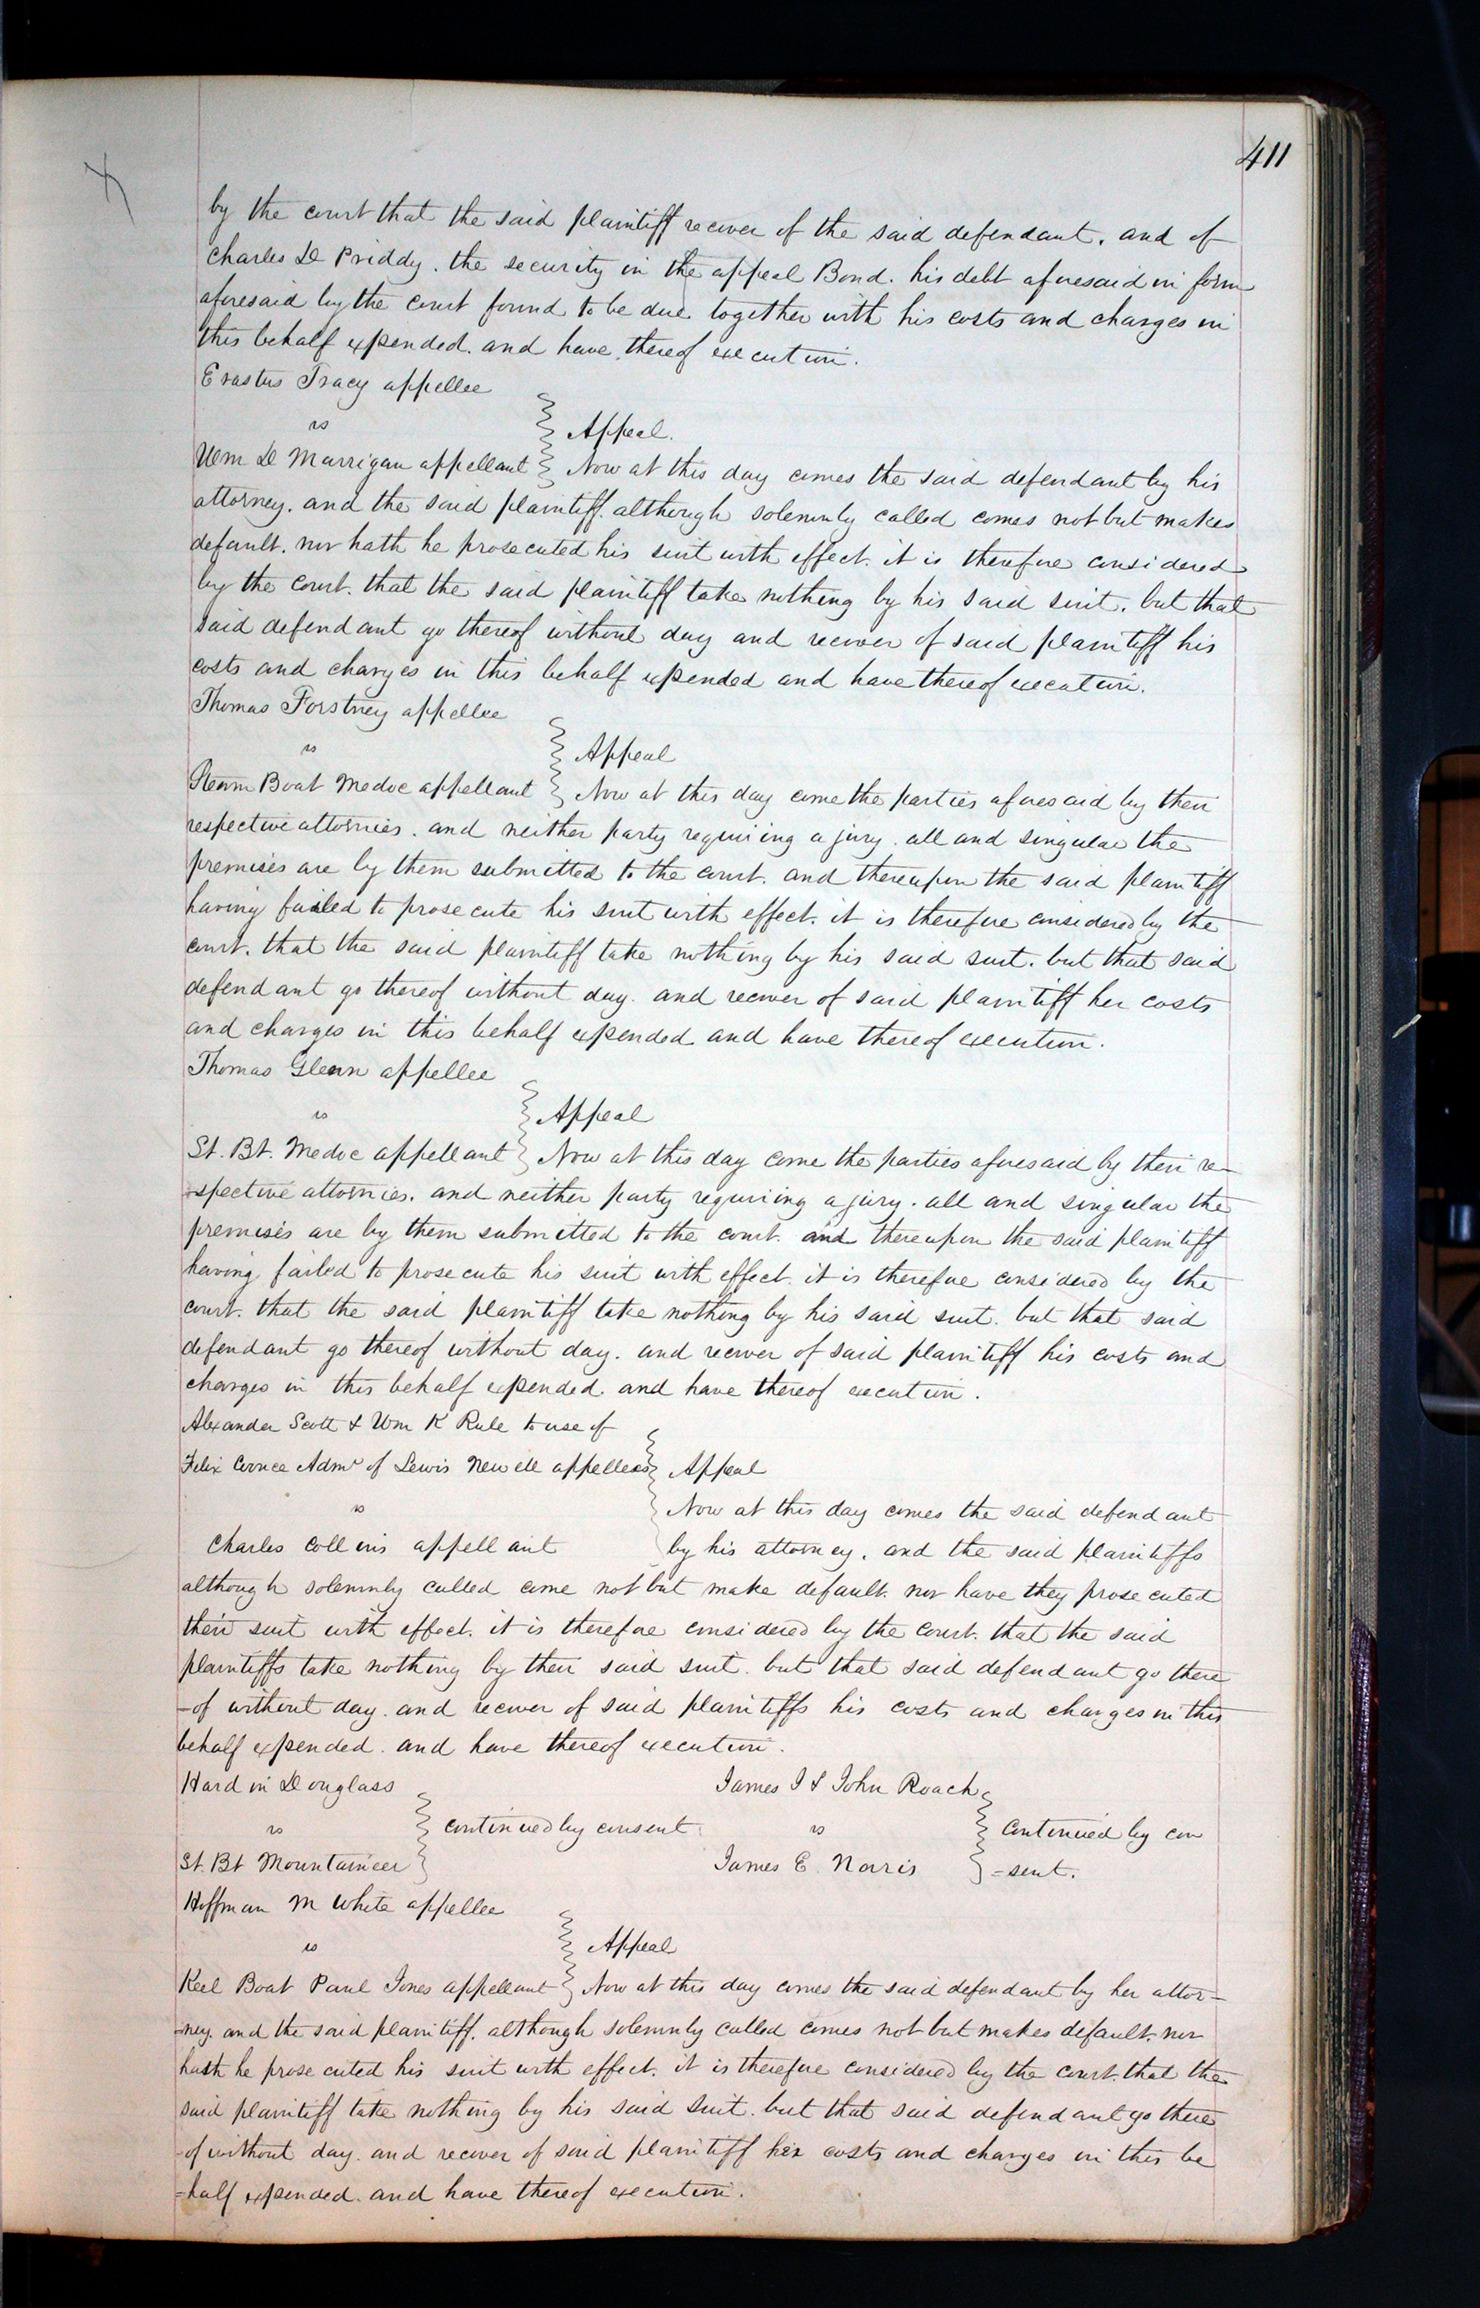 411
by the court that the said plaintiff recover of the said defendant. and of
Charles D Priddy. the security in the appeal Bond. his debt aforesaid in form
aforesaid by the court found to be due together with his costs and charges in
this behalf expended. and have thereof execution.
Erastus Tracy appellee
vs
Appeal.
Wm D Marrigan appellant Now at this day comes the said defendant by his
attorney. and the said plaintiff. although solemnly called comes not but makes
default. nor hath he prosecuted his suit with effect. it is therefore considered
by the court. that the said plaintiff take nothing by his said suit. but that
said defendant go thereof without day and recover of said plaintiff his
costs and charges in this behalf expended and have thereof execution.
Thomas Forstney appellee
vs
Appeal
Steam Boat Medoc appellant Now at this day come the parties aforesaid by their
respective attornies. and neither party requiring a jury. all and singular the
premises are by them submitted to the court. and thereupon the said plaintiff
having failed to prosecute his suit with effect. it is therefore considered by the
court. that the said plaintiff take nothing by his said suit. but that said
defendant go thereof without day. and recover of said plaintiff her costs
and charges in this behalf expended and have thereof execution.
Thomas Glenn appellee
vs
Appeal
St. Bt. Medoc appellant Now at this day come the parties aforesaid by their re-
-spective attornies. and neither party requiring a jury. all and singular the
premises are by them submitted to the court. and thereupon the said plaintiff
having failed to prosecute his suit with effect. it is therefore considered by the
court. that the said plaintiff take nothing by his said suit. but that said
defendant go thereof without day. and recover of said plaintiff his costs and
charges in this behalf expended. and have thereof execution.
Alexander Scott & Wm K Rule to use of
Felix Admr of Lewis Newell appellees Appeal
vs
Now at this day comes the said defendant
Charles Collins appellant by his attorney. and the said plaintiffs
although solemnly called come not but make default. nor have they prosecuted
their suit with effect. it is therefore considered by the court. that the said
plaintiffs take nothing by their said suit. but that said defendant go there
-of without day. and recover of said plaintiffs his costs and charges in this
behalf expended. and have thereof execution.
Hardin Douglass
vs
continued by consent.
St. Bt Mountaineer
James I & John Roach
vs
continued by con
James E. Norris =sent.
Hoffman M White appellee
vs
Appeal
Keel Boat Paul Jones appellant Now at this day comes the said defendant by her attor=
=ney. and the said plaintiff. although solemnly called comes not but makes default. nor
hath he prosecuted his suit with effect. it is therefore considered by the court. that the
said plaintiff take nothing by his said suit. but that said defendant go there
-of without day. and recover of said plaintiff her costs and charges in this be
=half expended. and have thereof execution.